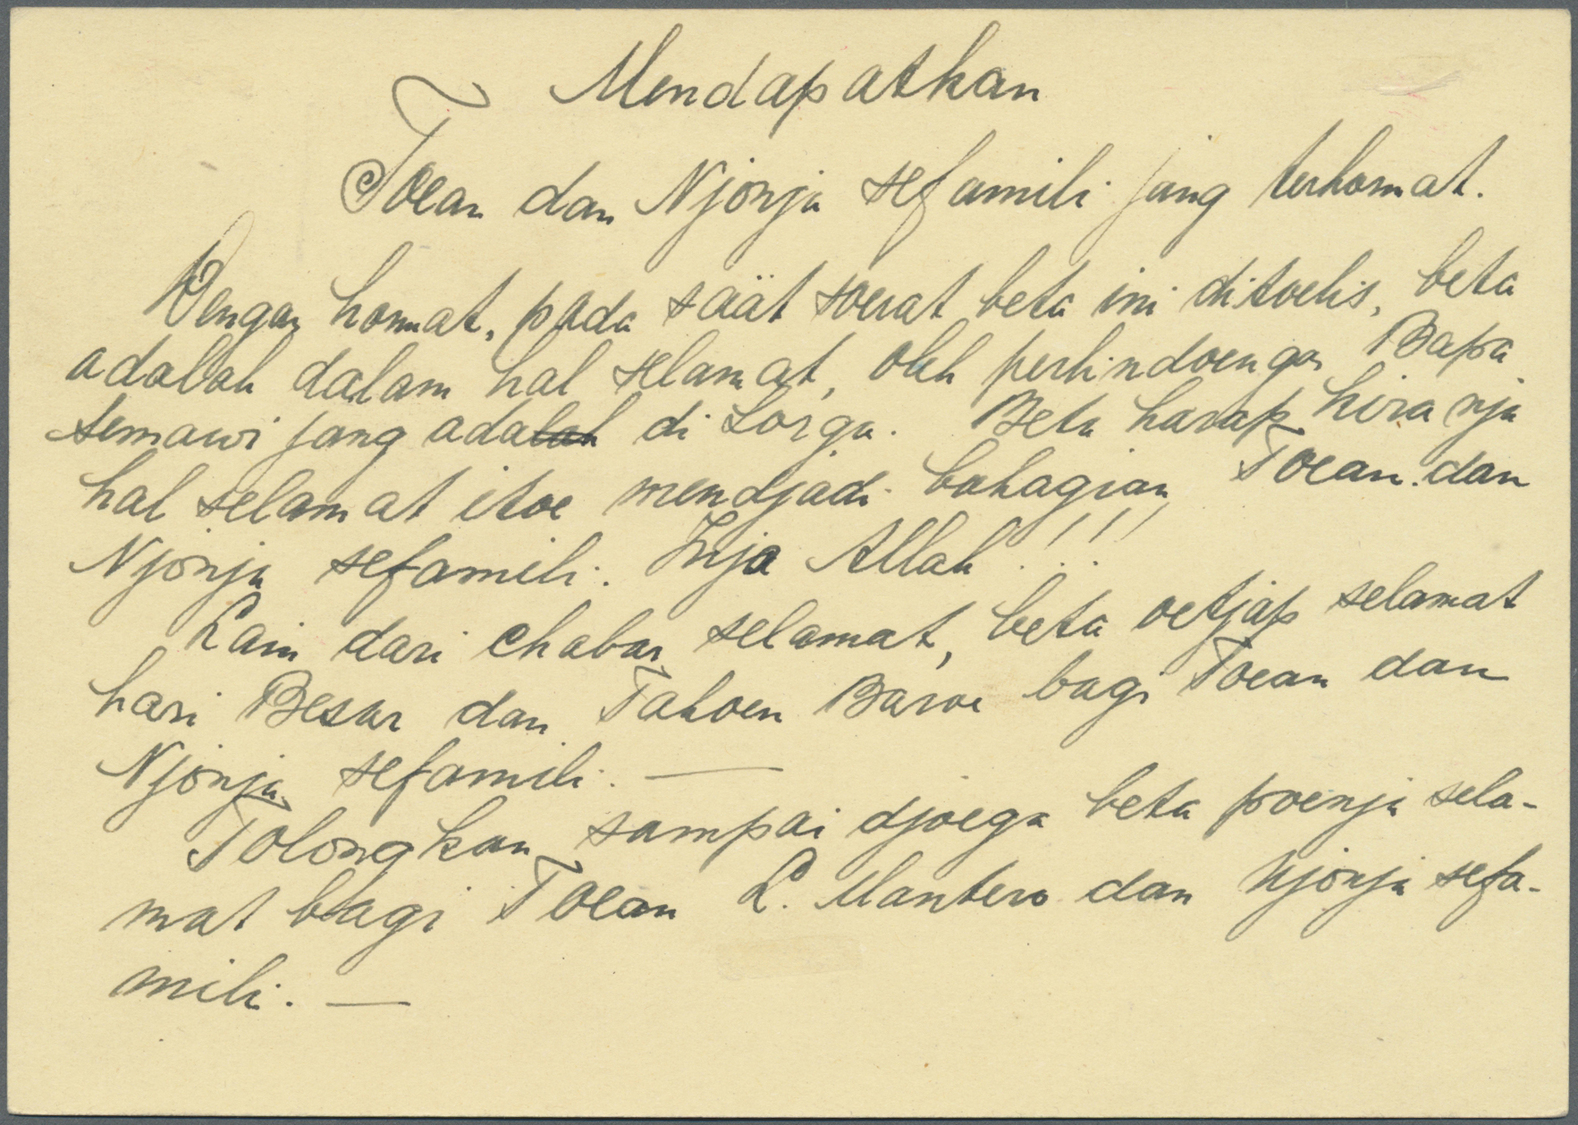 Mendapatkan
Toean dan Njonja sefamili jang terhormat.
Dengan hormat, pada säät soerat beta ini ditoelis, beta
adalah dalam hal selamat, oleh perlindoengan Bapa
semawi jang adalah di Sorga. Beta harap kiranja
hal selamat itoe mendjadi bahagian Toean dan
Njonja sefamili. Insja Allah !!!
Lain dari chabar selamat, beta oetjap selamat
hari Besar dan Tahoen Baroe bagi Toean dan
Njonja sefamili. —
Tolongkan sampai djoega beta poenja sela-
mat bagi Toean L. Mantero dan Njonja sefa-
mili. —